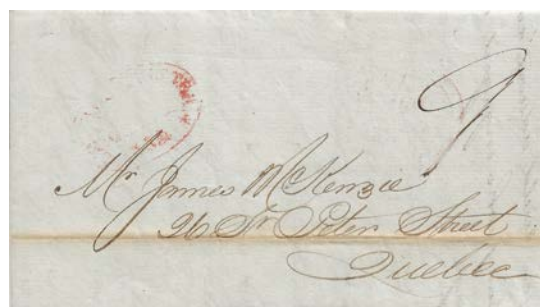 9
Mr James McKenzie
26 St Peter Street
Quebec